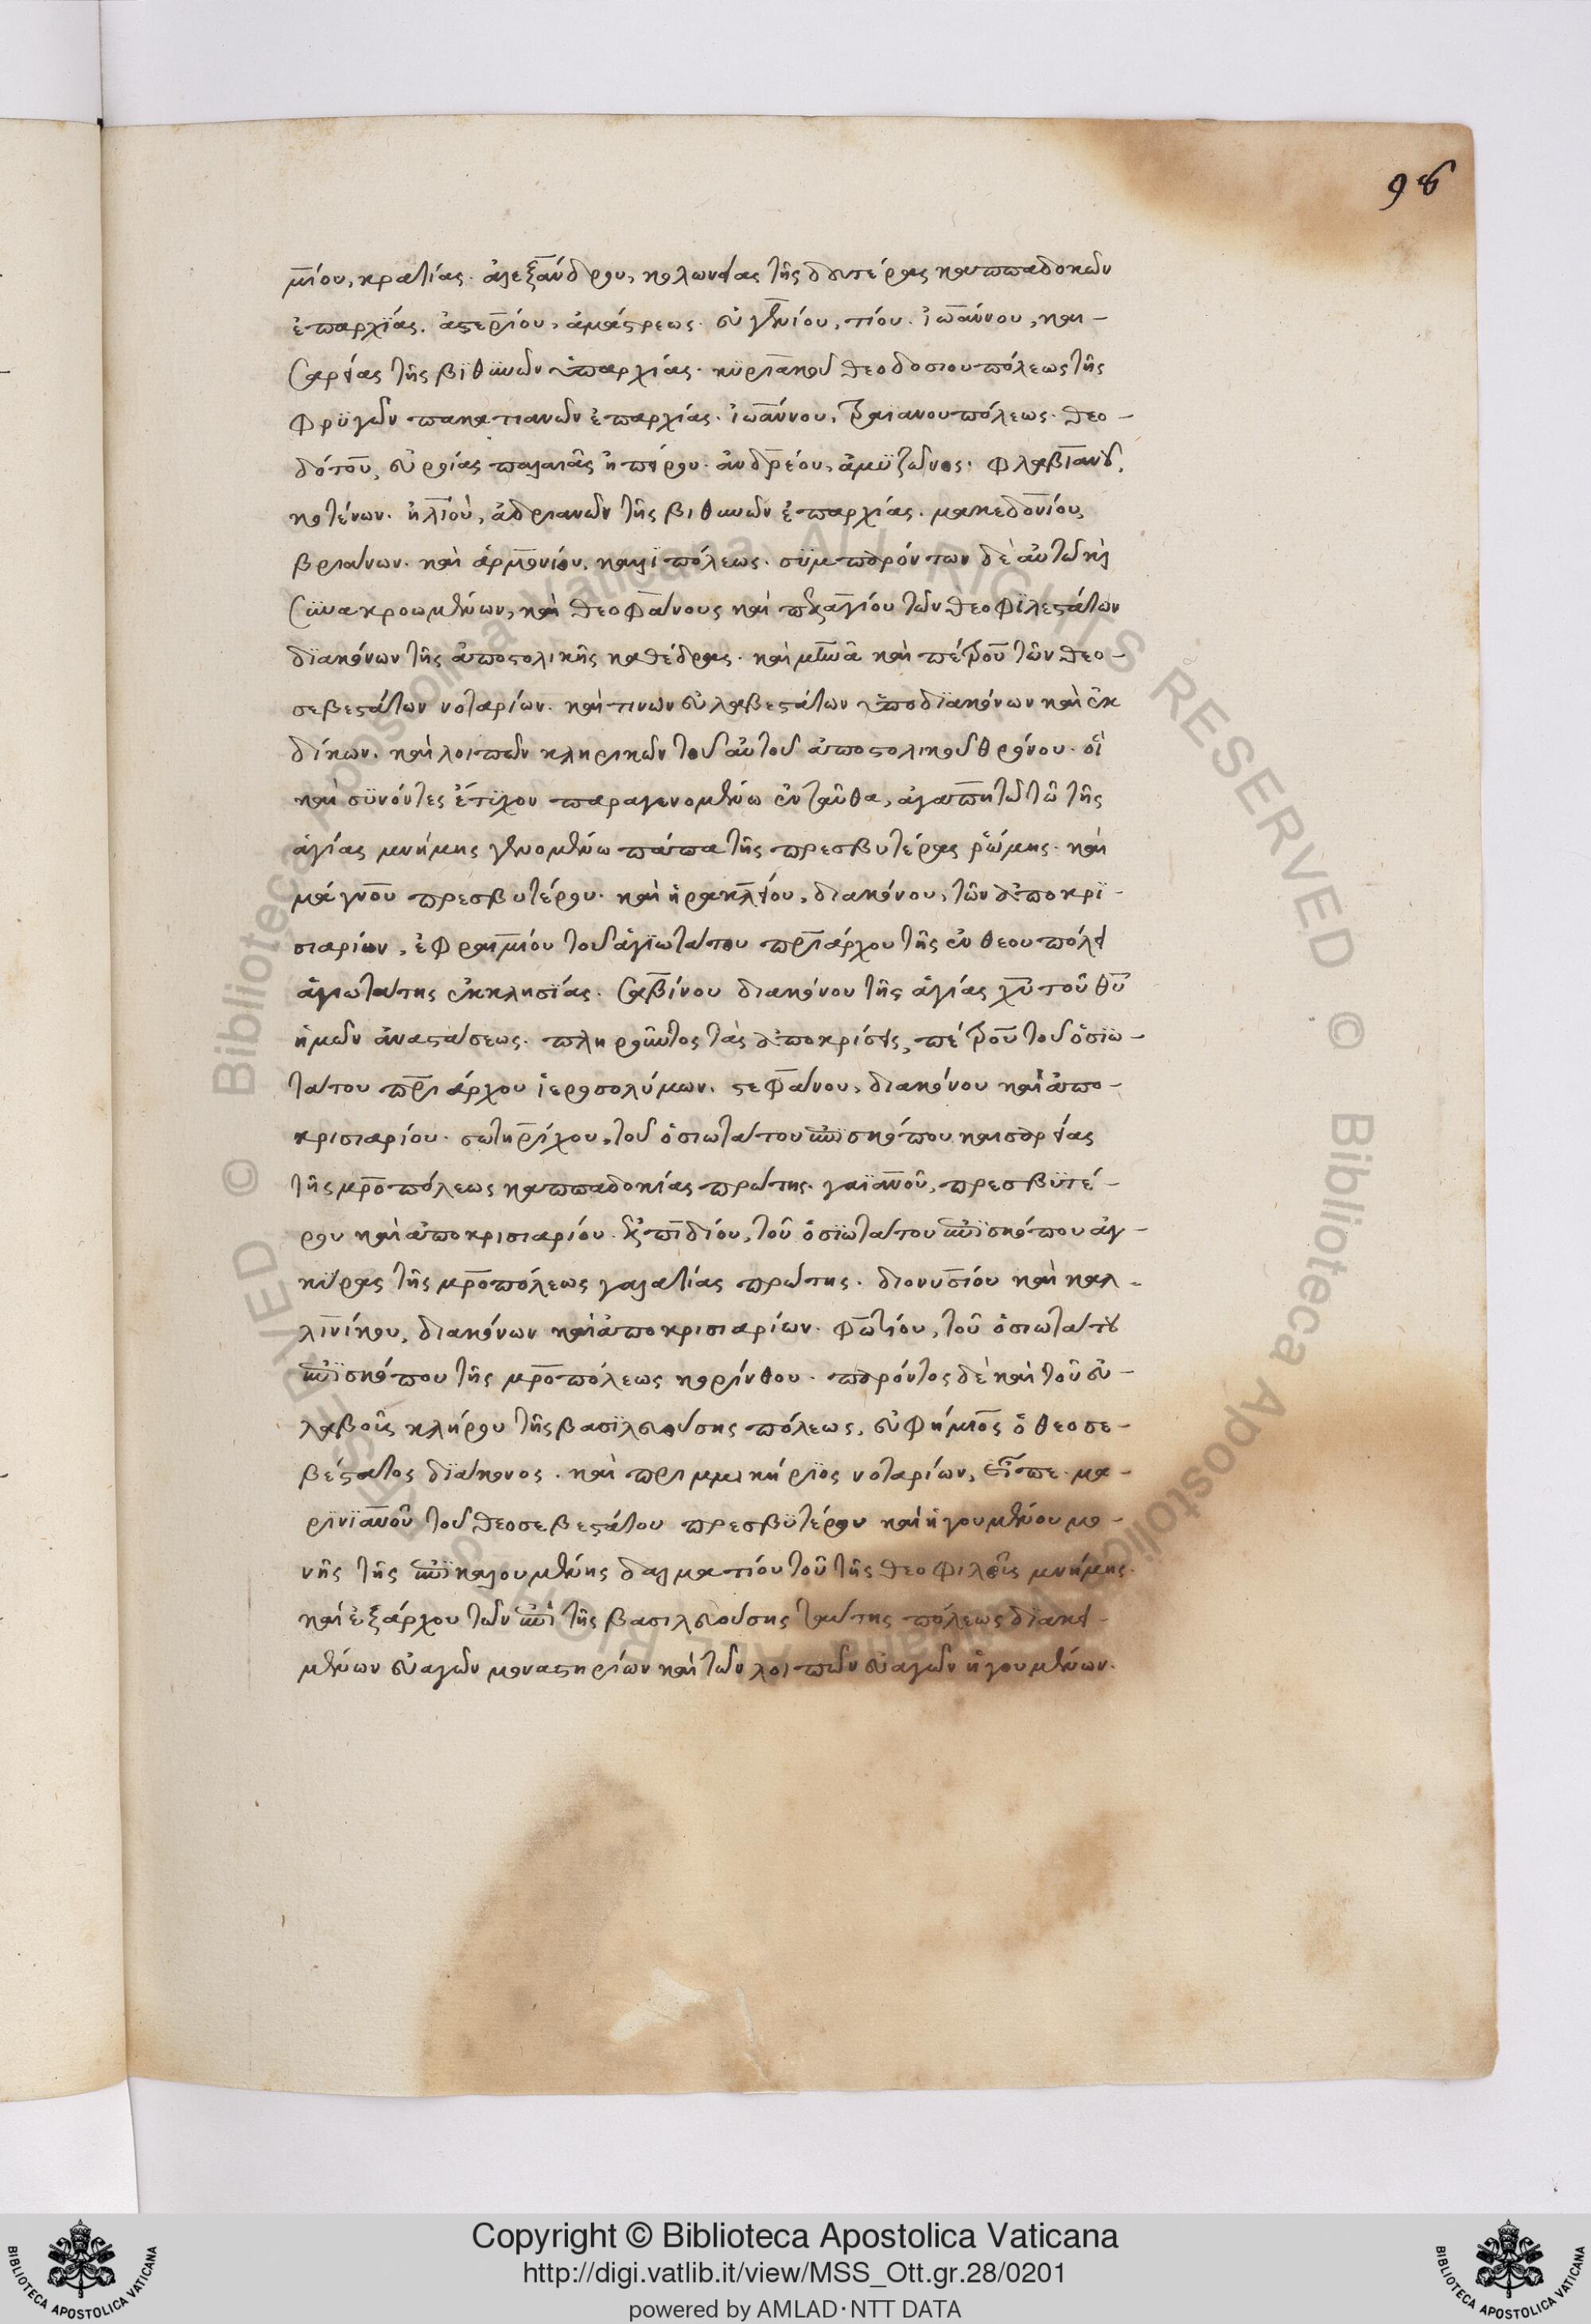 98
μίου, κρατίας. ἀλεξάνδρου, κολωνείας τῆς δευτέρας καππαδοκῶν
ἐπαρχίας. ἀστερίου, ἀμάστρεως. εὐγενίου, τίου. ἰωάννου, και-
σαρείας τῆς βϊθυνῶν ἐπαρχίας. κϋριακοῦ θεοδοσιουπόλεως τῆς
φρϋγῶν πακατιανῶν ἐπαρχίας. ἰωάννου, τραϊανουπόλεως. θεο-
δότου, εὐροίας παλαιᾶς ἠπείρου. ἀνδρέου, ἀμϋζῶνος. φλαβιανοῦ,
κοτένων. ἡλιοὺ, ἀδριανῶν τῆς βιθυνῶν ἐπαρχίας. μακεδονίου,
βριάνων. καὶ ἁρμονίου, καλϊπόλεως. σϋμπαρόντων δὲ αὐτῶ καὶ
σϋνακροωμένων, καὶ θεοφάνους καὶ πελαγίου τῶν θεοφϊλεστάτων
δϊακόνων τῆς ἀποστολικῆς καθέδρας. καὶ μηνᾶ καὶ πέτρου τῶν θεο-
σεβεστάτων νοταρίων. καὶ τινων εὐλαβεστάτων ὑποδϊακόνων καὶ ἐκ
δίκων. καὶ λοιπῶν κληρικῶν τοῦ αὐτοῦ ἀποστολικοῦ θρόνου. οἳ
καὶ σϋνόντες ἔτϋχον παραγενομένω ἐνταῦθα, ἀγαπητῶ τῶ τῆς
ἁγίας μνήμης γενομένω πάπα τῆς πρεσβυτέρας ῥώμης. καὶ
μάγνου πρεσβυτέρου. καὶ ἡρακλείου, διακόνου, τῶν ἀποκρϊ-
σιαρίων, ἐφραιμίου τοῦ ἁγϊωτάτου πριάρχου τῆς ἐν θεουπόλει
ἁγιωτάτης ἐκκλησίας. σαβίνου διακόνου τῆς ἁγίας χυ τοῦ θυ
ἡμῶν ἀναστάσεως. πληροῦντος τὰς ἀποκρίσεις, πέτρου τοῦ ὁσϊω-
τάτου πριάρχου ἱεροσολύμων. στεφάνου, διακόνου καὶ ἀπο-
κρισιαρίου. σωτηρίχου, τοῦ ὁσιωτάτου ἐπϊσκόπου καισαρείας
τῆς μροπόλεως καππαδοκίας πρώτης. γαϊανοῦ, πρεσβϋτέ-
ρου καὶ ἀποκρισιαρίου. ἐλπιδίου, τοῦ ὁσϊωτάτου ἐπϊσκόπου ἀγ-
κύρας τῆς μροπόλεως γαλατίας πρώτης. διονυσίου καὶ καλ-
λινίκου, διακόνων καὶ ἀποκρισιαρίων. φωτίου, τοῦ ὁσιωτάτου
ἐπϊσκόπου τῆς μροπόλεως κορίνθου. παρόντος δὲ καὶ τοῦ εὐ-
λαβοῦς κλήρου τῆς βασϊλευούσης πόλεως, εὐφήμιος ὁ θεοσε-
βέστατος δϊάκονος. καὶ πριμμικήρϊος νοταρίων, εἶπε. μα-
ρινϊανοῦ τοῦ θεοσεβεστάτου πρεσβϋτέρου καὶ ἡγουμένου μο-
νῆς τῆς ἐπϊκαλουμένης δαλματίου τοῦ τῆς θεοφιλοῦς μνήμης.
καὶ ἐξάρχου τῶν ἐπὶ τῆς βασιλευούσης ταύτης πόλεως δϊακει-
μένων εὐαγῶν μοναστηρίων καὶ τῶν λοιπῶν εὐαγῶν ἡγουμένων.
© Biblioteca Apostolica Vaticana. ALL RIGHTS RESERVED © Biblioteca Apostolica Vaticana. ALL RIGHTS RESERVED
Copyright © Biblioteca Apostolica Vaticana
http://digi.vatlib.it/view/MSS_Ott.gr.28/0201
powered by AMLAD·NTT DATA
BIBLIOTECA APOSTOLICA VATICANA
BIBLIOTECA APOSTOLICA VATICANA